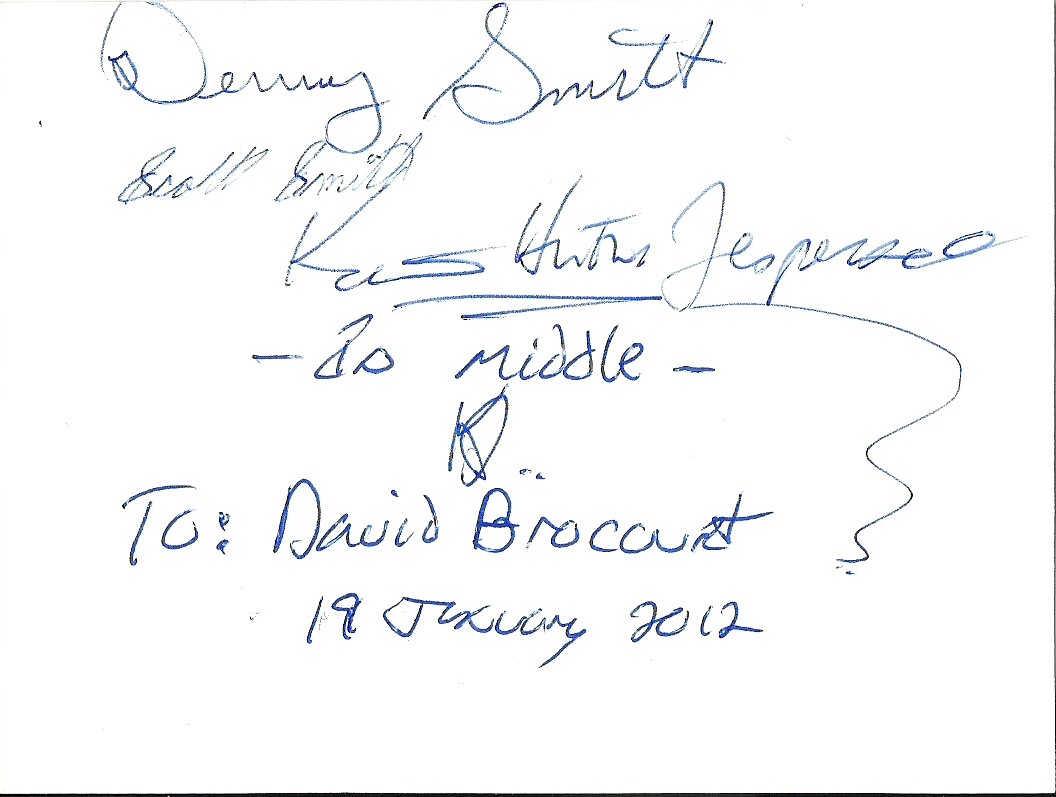 Denny Smith
Scott Smith
Keith Hunter Jesperson
- In middle -
To: David Brocourt
19 January 2012